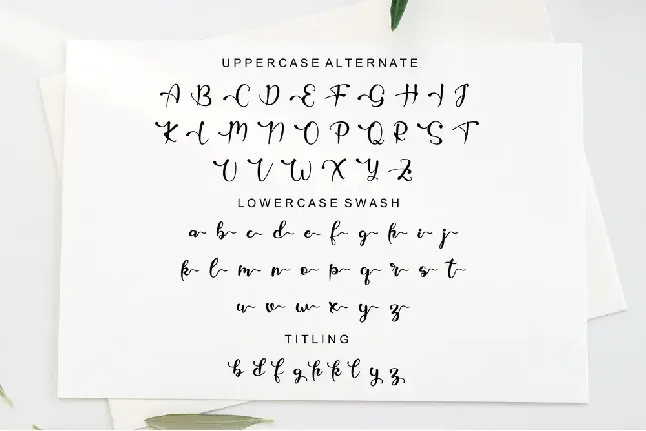 UPPERCASE ALTERNATE
A B C D E F G H I J
K L M N O P Q R S T
U V W X Y Z
LOWERCASE SWASH
a b c d e f g h i j
k l m n o p q r s t
u v w x y z
TITLING
b d f g h k l y z